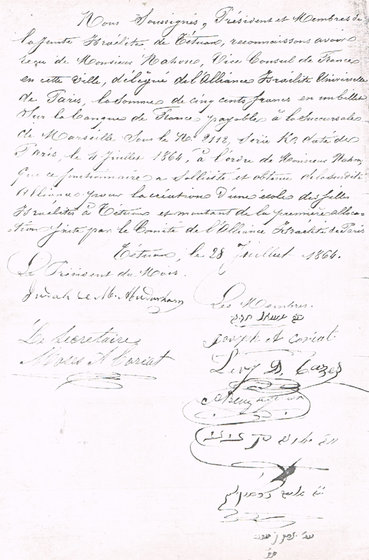 Nous Soussignés, Président et Membres de
la Junte Israélite de Tétuan, reconnaissons avoir
reçu de Monsieur Nahon, Vice Consul de France
en cette Ville, délégué de l'Alliance Israélite Universelle
de Paris, la somme de cinq cents francs en un billet
sur la banque de France payable à la succursale
de Marseille sous le Nº 2112, Série K, daté de
Paris, le 4 Juillet 1864, à l'ordre de Monsieur Nahon,
que ce fonctionnaire a sollicité et obtenu de la susdite
Alliance pour la création d'une école de filles
Israélites à Tétuan et montant de la première alloca-
tion faite par le Comité de l'Alliance Israélite de Paris
Tétuan, le 28 Juillet 1864.
Le Président du Mois.
Judah
Les Membres.
Joseph A Coriat
Le Secrétaire
Moses A Coriat
Levy D. Cazes